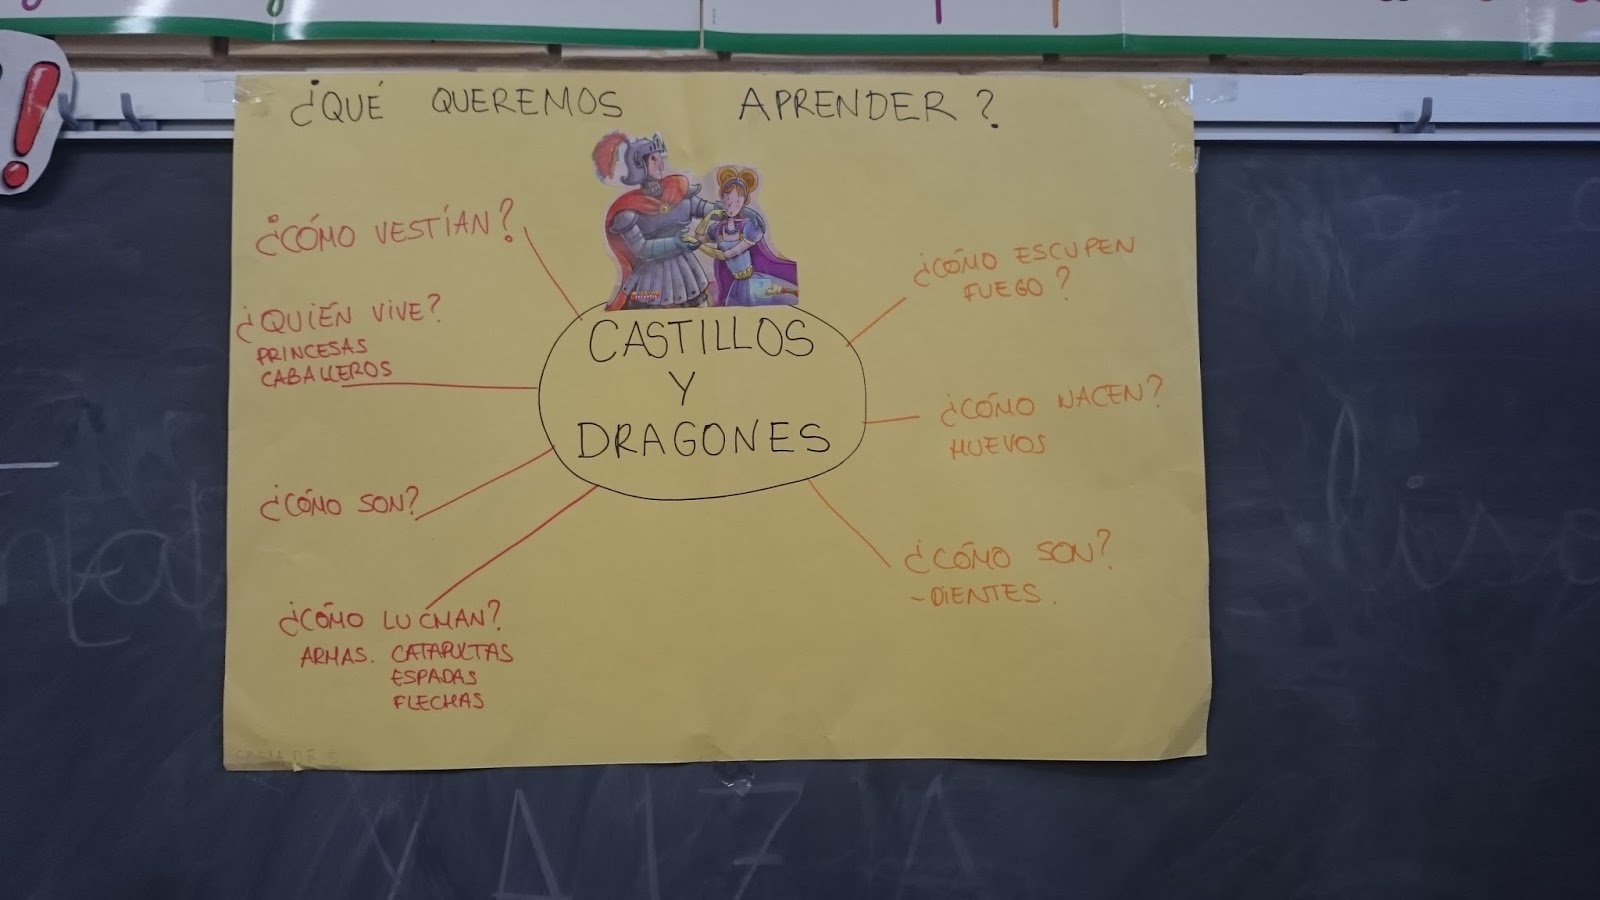 ¿QUÉ QUEREMOS APRENDER?
¿CÓMO VESTÍAN?
¿QUIÉN VIVE?
PRINCESAS
CABALLEROS
¿CÓMO SON?
¿CÓMO LUCHAN?
ARMAS. CATAPULTAS
ESPADAS
FLECHAS
CASTILLOS
Y
DRAGONES
¿CÓMO ESCUPEN
FUEGO?
¿CÓMO NACEN?
HUEVOS
¿CÓMO SON?
- DIENTES.